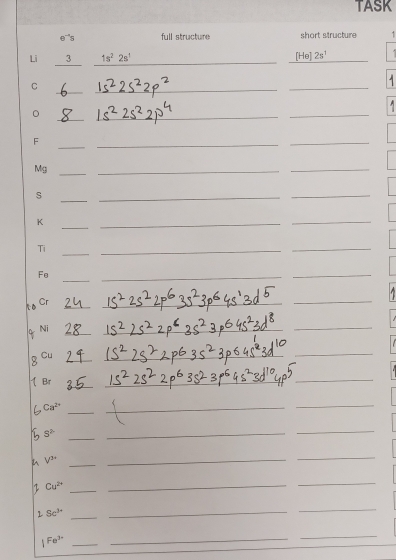 TASK
e⁻'s full structure short structure 1
Li 3 1s² 2s¹ [He] 2s¹ 1
C 6 1s² 2s² 2p² 1
O 8 1s² 2s² 2p⁴ 1
F
Mg
S
K
Ti
Fe
10 Cr 24 1s² 2s² 2p⁶ 3s² 3p⁶ 4s¹ 3d⁵ 1
9 Ni 28 1s² 2s² 2p⁶ 3s² 3p⁶ 4s² 3d⁸
8 Cu 29 1s² 2s² 2p⁶ 3s² 3p⁶ 4s¹ 3d¹⁰
7 Br 35 1s² 2s² 2p⁶ 3s² 3p⁶ 4s² 3d¹⁰ 4p⁵ 1
6 Ca²⁺
5 S²⁻
4 V³⁺
Cu²⁺
2 Sc³⁺
1 Fe³⁺